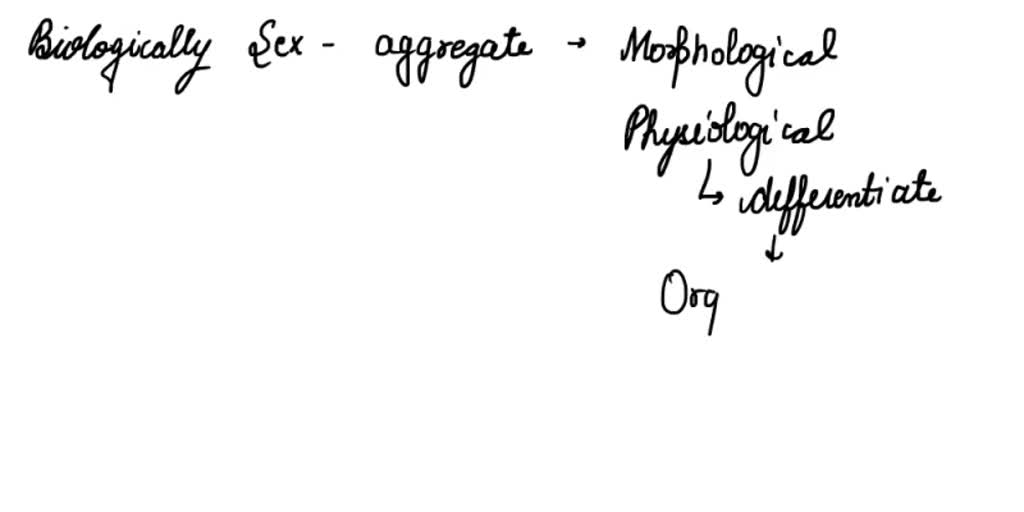 Biologically Sex - aggregate → Morphological
Physiological
↳ differentiate
↓
Org